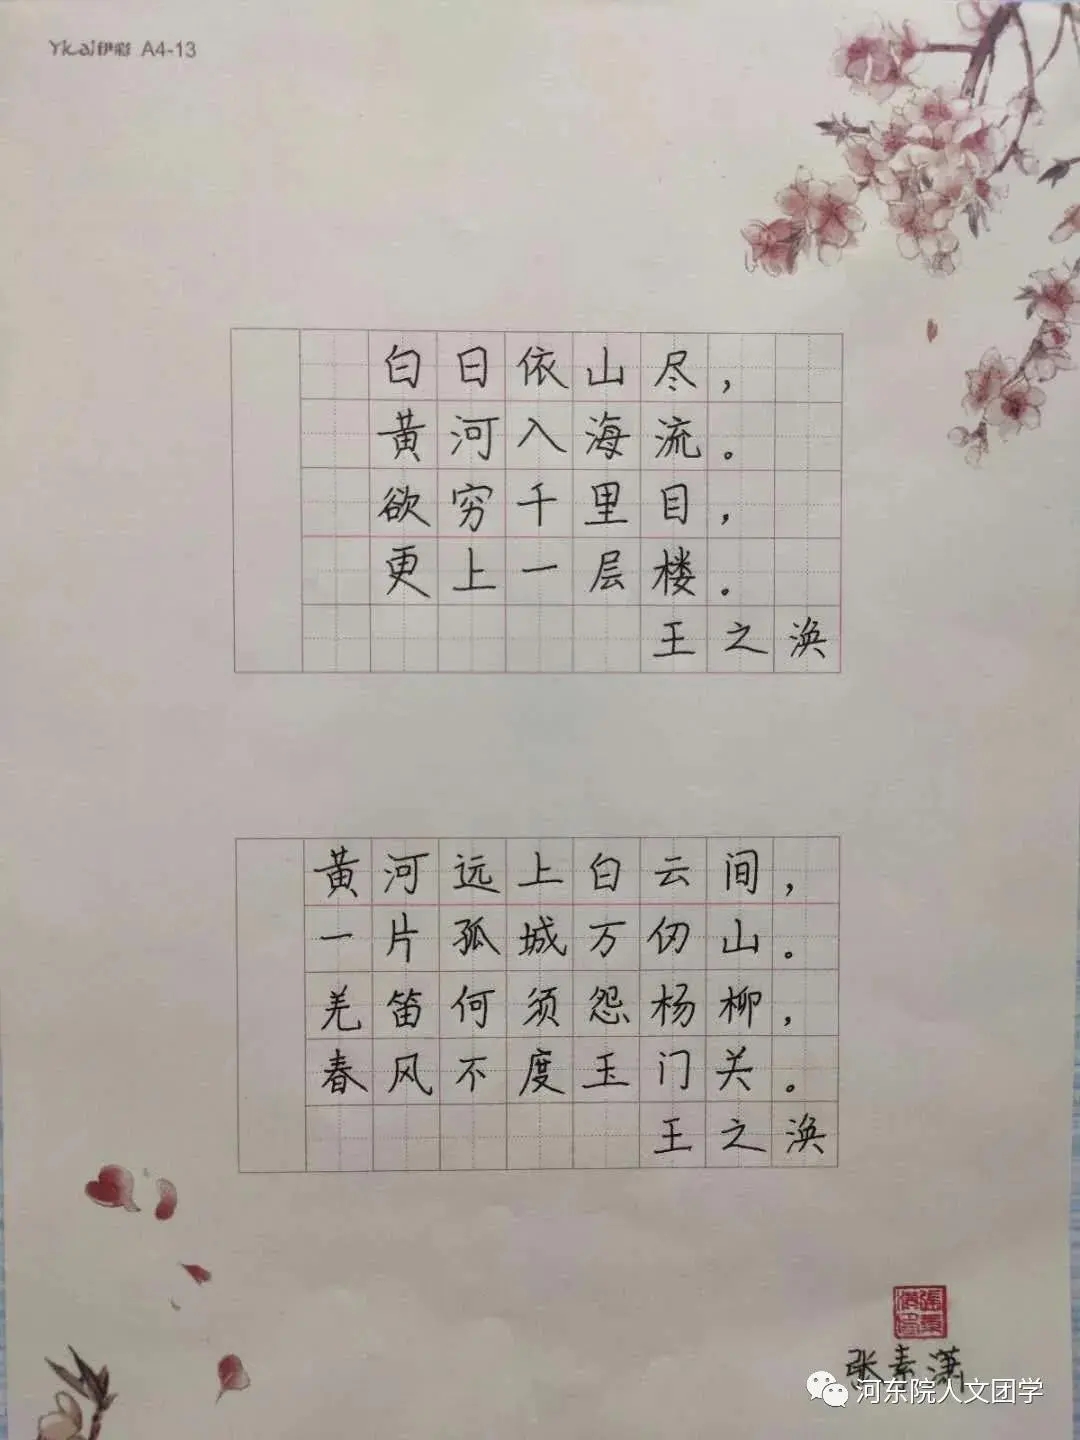 Ykai伊彩 A4-13
白日依山尽，
黄河入海流。
欲穷千里目，
更上一层楼。
王之涣
黄河远上白云间，
一片孤城万仞山。
羌笛何须怨杨柳，
春风不度玉门关。
王之涣
张素潇
河东院人文团学